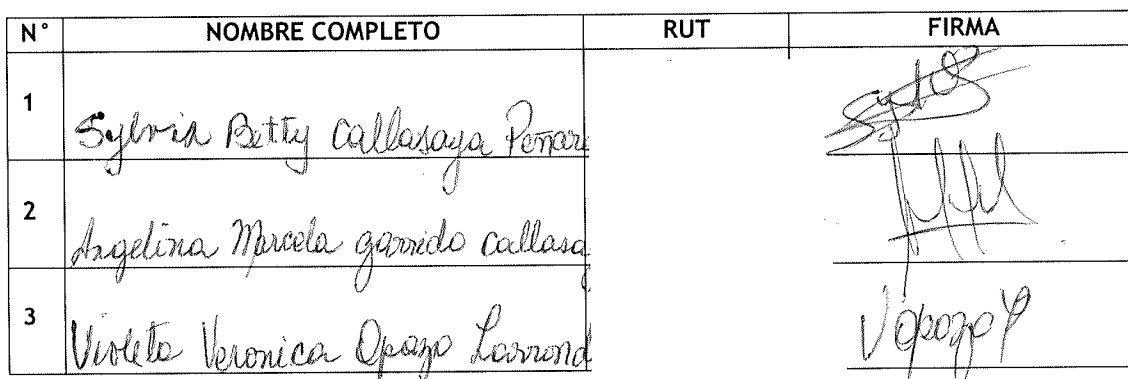 N° NOMBRE COMPLETO RUT FIRMA
1 Sylvia Betty Callasaya Peñar
2 Angelina Marcela garrido callasa
3 Violeta Veronica Opazo Larrond VOpazo